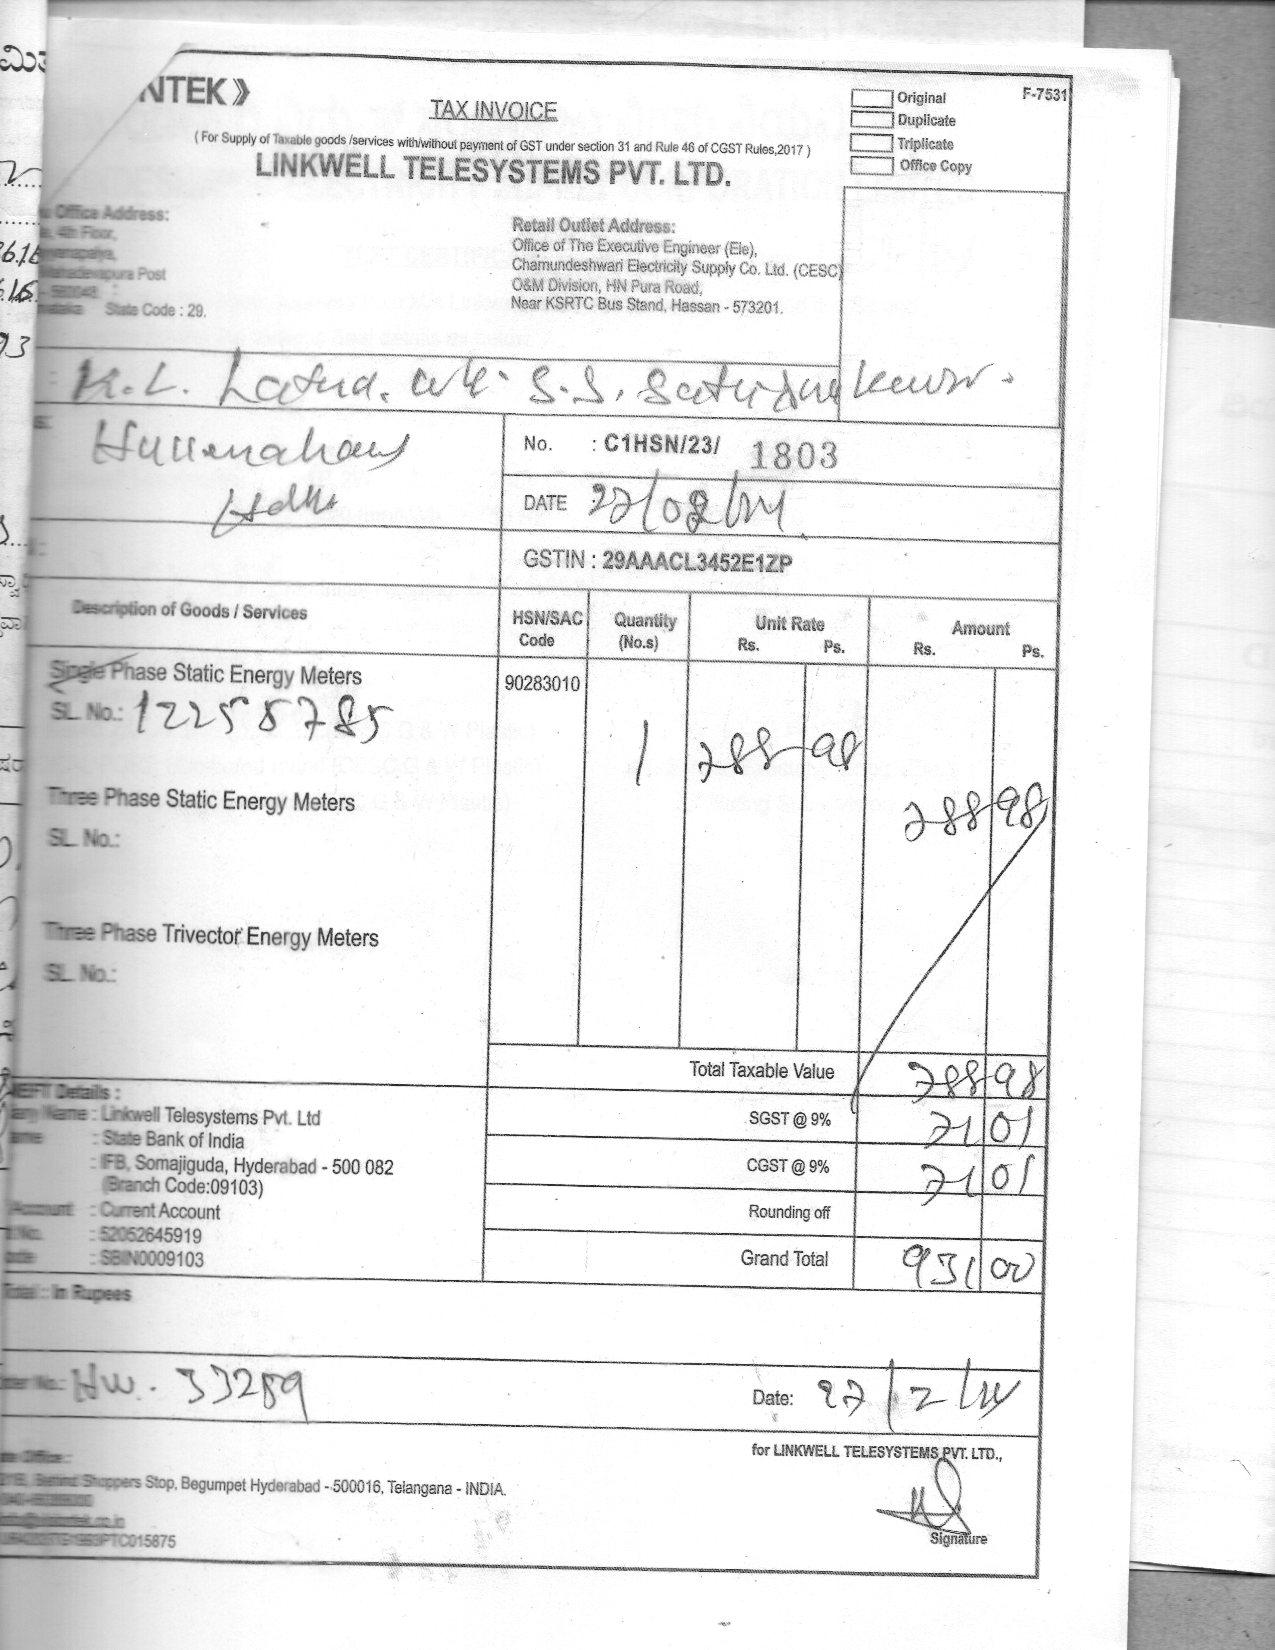 NTEK》
TAX INVOICE
F-7531
Original
Duplicate
Triplicate
Office Copy
( For Supply of Taxable goods /services with/without payment of GST under section 31 and Rule 46 of CGST Rules,2017 )
LINKWELL TELESYSTEMS PVT. LTD.
Office Address:
4th Floor,
Mahadevapura Post
State Code : 29.
Retail Outlet Address:
Office of The Executive Engineer (Ele),
Chamundeshwari Electricity Supply Co. Ltd. (CESC)
O&M Division, HN Pura Road,
Near KSRTC Bus Stand, Hassan - 573201.
K.L. Latha. S.S.
No. : C1HSN/23/ 1803
DATE 22/02/24
GSTIN : 29AAACL3452E1ZP
Description of Goods / Services HSN/SAC Code Quantity (No.s) Unit Rate Rs. Ps. Amount Rs. Ps.
Single Phase Static Energy Meters 90283010
SL. No.: 12258785 1 788 98
Three Phase Static Energy Meters 788 98
SL. No.:
Three Phase Trivector Energy Meters
SL. No.:
Total Taxable Value 788 98
NEFT Details :
Name : Linkwell Telesystems Pvt. Ltd
SGST @ 9% 71 01
: State Bank of India
: IFB, Somajiguda, Hyderabad - 500 082
CGST @ 9% 71 01
(Branch Code:09103)
Account : Current Account
Rounding off
: 52052645919
: SBIN0009103
Grand Total 931 00
Total : In Rupees
No.: HW. 33289
Date: 22/2/24
for LINKWELL TELESYSTEMS PVT. LTD.,
Office :
Behind Shoppers Stop, Begumpet Hyderabad - 500016, Telangana - INDIA.
PTC015875
Signature